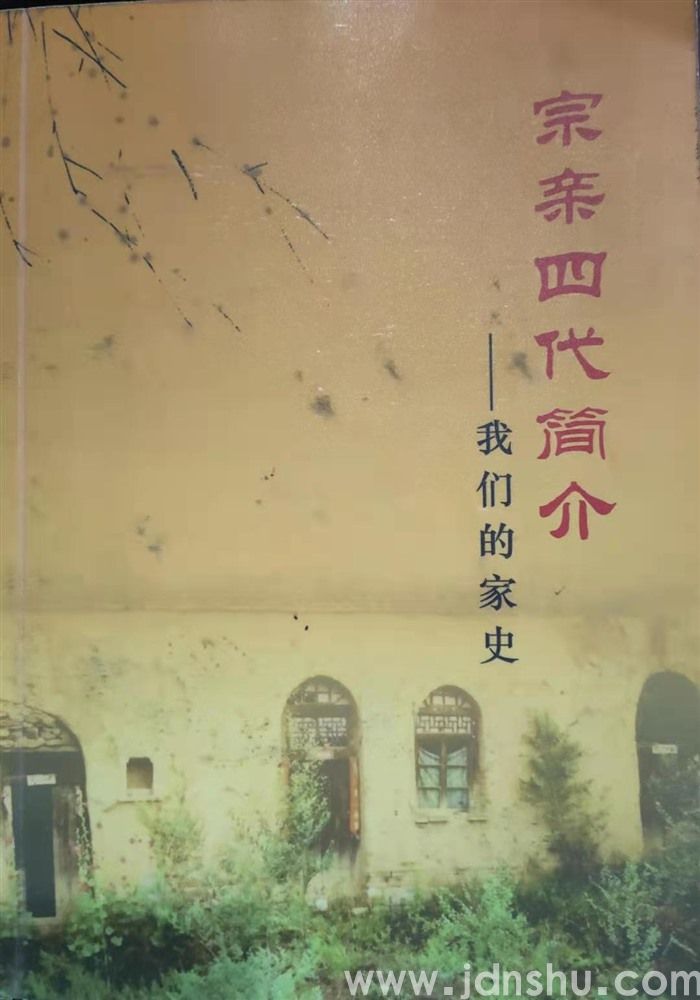 宗亲四代简介
——我们的家史
www.jdnshu.com